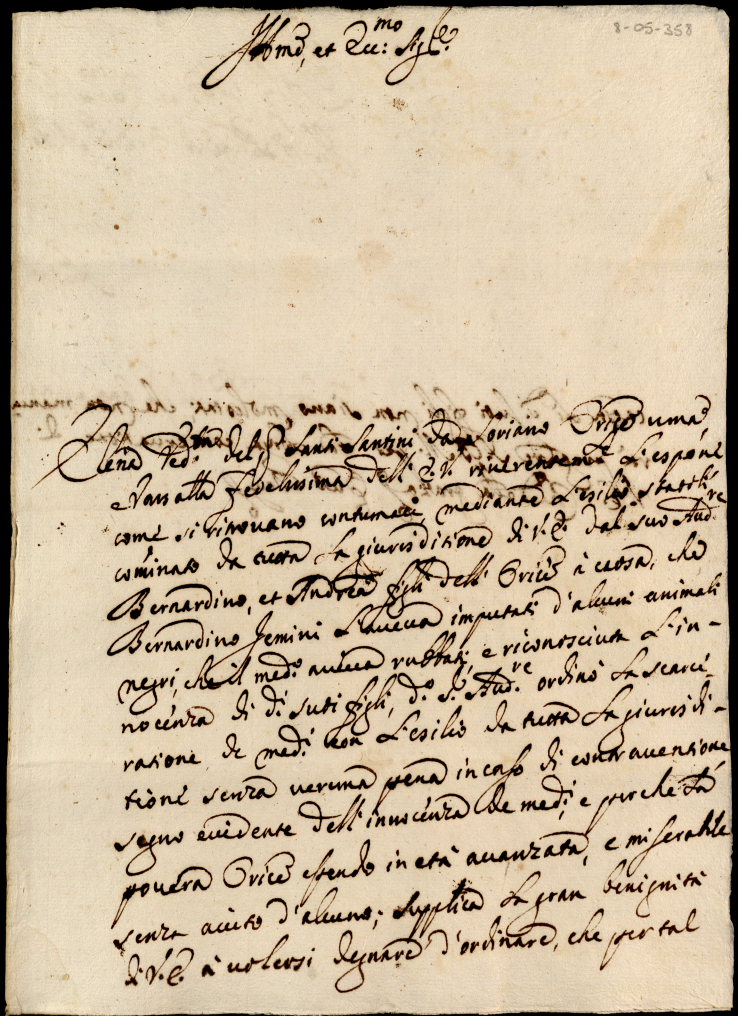 8-05-358
Ill.mo, et Ecc.mo Sig.re
Elena Ved.a del q. Santi Santini da Soriano Oric.e uma
e Vassalla fedelissima dell' E.V. riverentem.te L'espone
come si ritrovano contumaci, mediante L'esilio
cominato da tutta La giurisditione di V.E. dal suo Aud.re
Bernardino, et Andrea figli dell' Oric.e à caosa, che
Bernardino Jemini L'aveva imputati d'alcuni animali
negri, che il med.o aveva rubbati, e riconosciuta L'in-
nocenza di d.i suoi figli, d.o S.r Aud.re ordinò La scarce-
ratione de med.i con L'esilio da tutta La giurisdi-
tione senza veruna pena in caso di contraventione
segno evidente dell' innocenza de med.i, e perche La
povera Oric.e essendo in età avanzata, e miserabile
senza aiuto d'alcuno; supplica La gran benignità
di V.E. à volersi degnare d'ordinare, che per tal